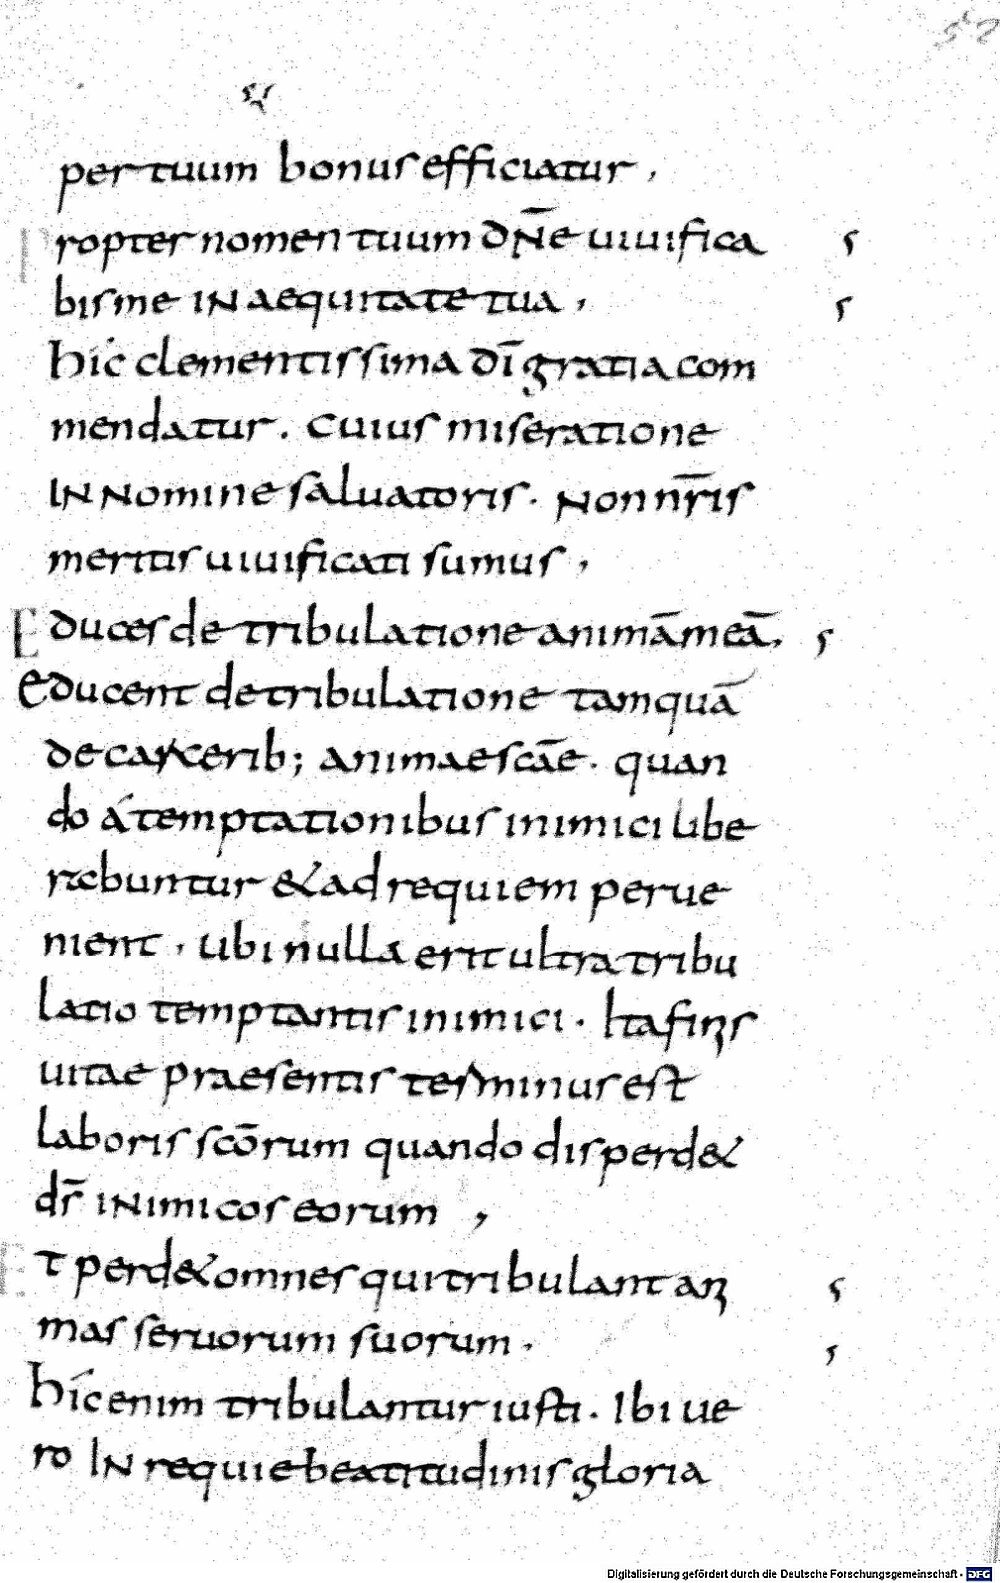 52
per tuum bonus efficiatur,
Propter nomen tuum dn̄e uiuifica
bis me in aequitate tua,
hic clementissima dī gratia com
mendatur. cuius miseratione
in nomine saluatoris. Non nr̄is
meritis uiuificati sumus,
Educes de tribulatione animā meā,
Educent de tribulatione tamquā
de carcerib; animae scāe. quan
do á temptationibus inimici libe
rabuntur & ad requiem perue
nient, ubi nulla erit ultra tribu
latio temptantis inimici. Ita finis
uitae praesentis terminus est
laboris scōrum quando disperd&
ds̄ inimicos eorum,
Et perd& omnes qui tribulant ani
mas seruorum suorum.
hic enim tribulantur iusti. Ibi ue
ro in requie beatitudinis gloria
Digitalisierung gefördert durch die Deutsche Forschungsgemeinschaft - DFG